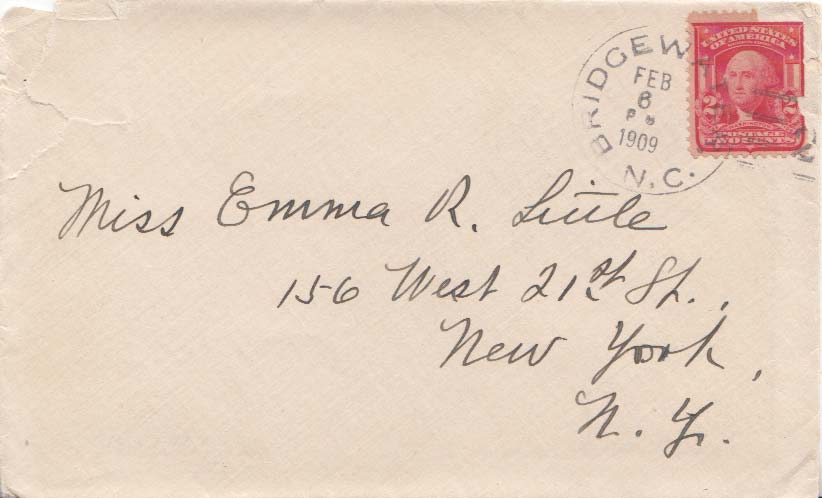 BRIDGEWATER
FEB
6
P M
1909
N.C.
UNITED STATES
OF AMERICA
2
POSTAGE
TWO CENTS
2
Miss Emma R. Little
156 West 21st St.,
New York,
N.Y.